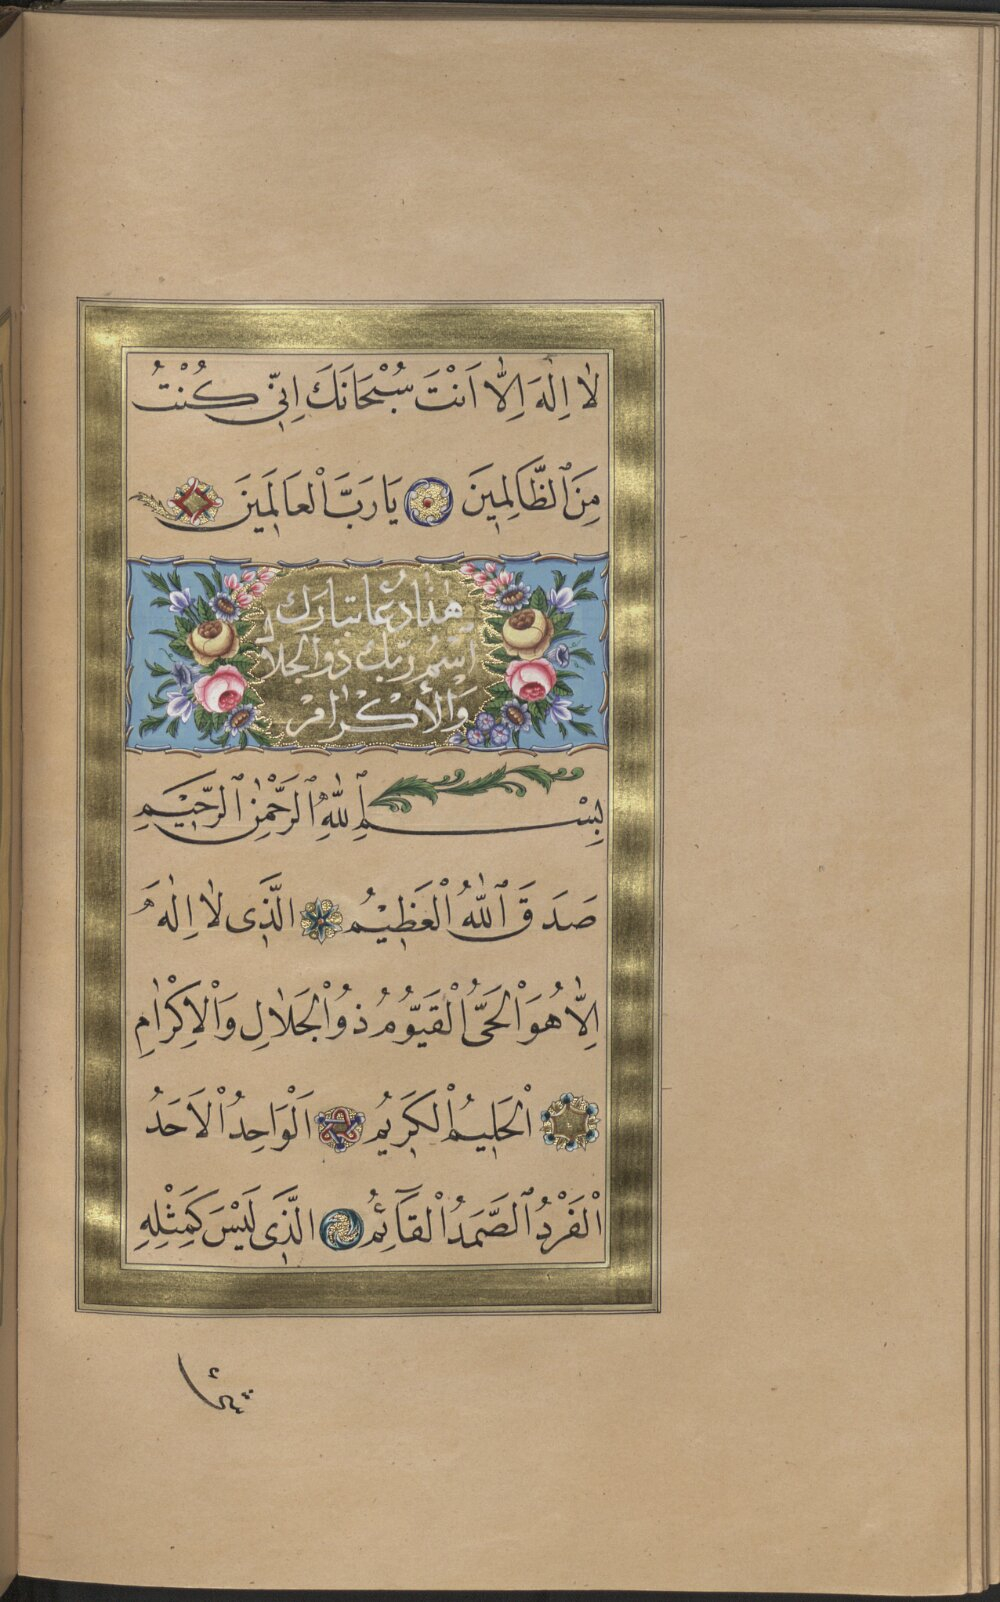 لَا اِلٰهَ اِلَّا اَنْتَ سُبْحَانَكَ اِنِّى كُنْتُ
مِنَ الظَّالِمِينَ يَا رَبَّ الْعَالَمِينَ
هٰذَا دُعَا تبارك
اسْمُ ربّك ذو الجلال
وَالْأَكْرَامْ
بِسْمِ اللّٰهِ الرَّحْمٰنِ الرَّحِيْمِ
صَدَقَ اللّٰهُ الْعَظِيْمُ الَّذِى لَا اِلٰهَ
اِلَّا هُوَ الْحَىُّ الْقَيُّومُ ذُو الْجَلَالِ وَالْاِكْرَامِ
اَلْحَلِيمُ الْكَرِيمُ اَلْوَاحِدُ الْاَحَدُ
اَلْفَرْدُ الصَّمَدُ الْقَآئِمُ الَّذِى لَيْسَ كَمِثْلِهِ
شئ